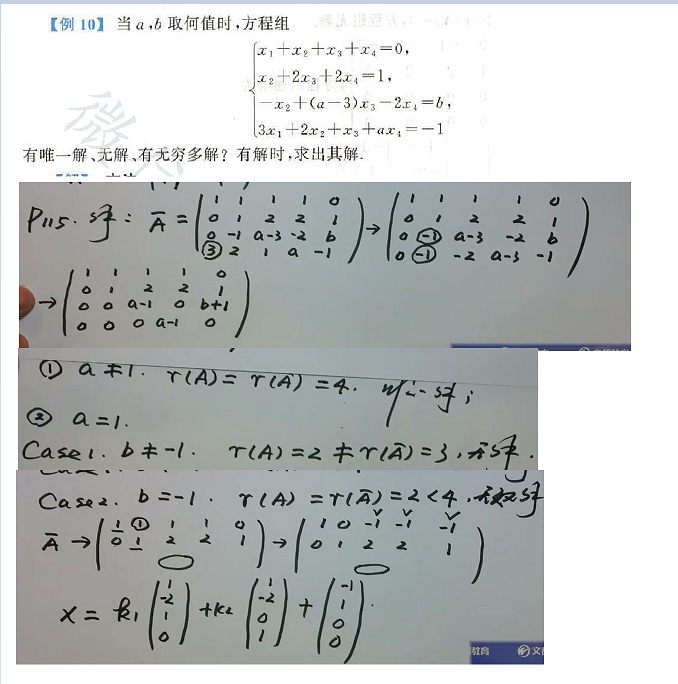 【例 10】 当 a,b 取何值时,方程组
x₁+x₂+x₃+x₄=0,
x₂+2x₃+2x₄=1,
-x₂+(a-3)x₃-2x₄=b,
3x₁+2x₂+x₃+ax₄=-1
有唯一解、无解、有无穷多解? 有解时,求出其解.
P115. 解: Ā = ( 1 1 1 1 0 → ( 1 1 1 1 0
0 1 2 2 1 0 1 2 2 1
0 -1 a-3 -2 b 0 -1 a-3 -2 b
③ 2 1 a -1 ) 0 -1 -2 a-3 -1 )
→ ( 1 1 1 1 0
0 1 2 2 1
0 0 a-1 0 b+1
0 0 0 a-1 0 )
① a≠1. r(A)=r(Ā)=4. 唯一解;
② a=1.
Case1. b≠-1. r(A)=2≠r(Ā)=3,无解.
Case2. b=-1. r(A)=r(Ā)=2<4,无穷解
Ā → ( 1 ① 1 1 0 → ( 1 0 -1 -1 -1
0 1 2 2 1 ) 0 1 2 2 1 )
x = k₁ ( 1 + k₂ ( 1 + ( -1
-2 -2 1
1 0 0
0 ) 1 ) 0 ).
教育